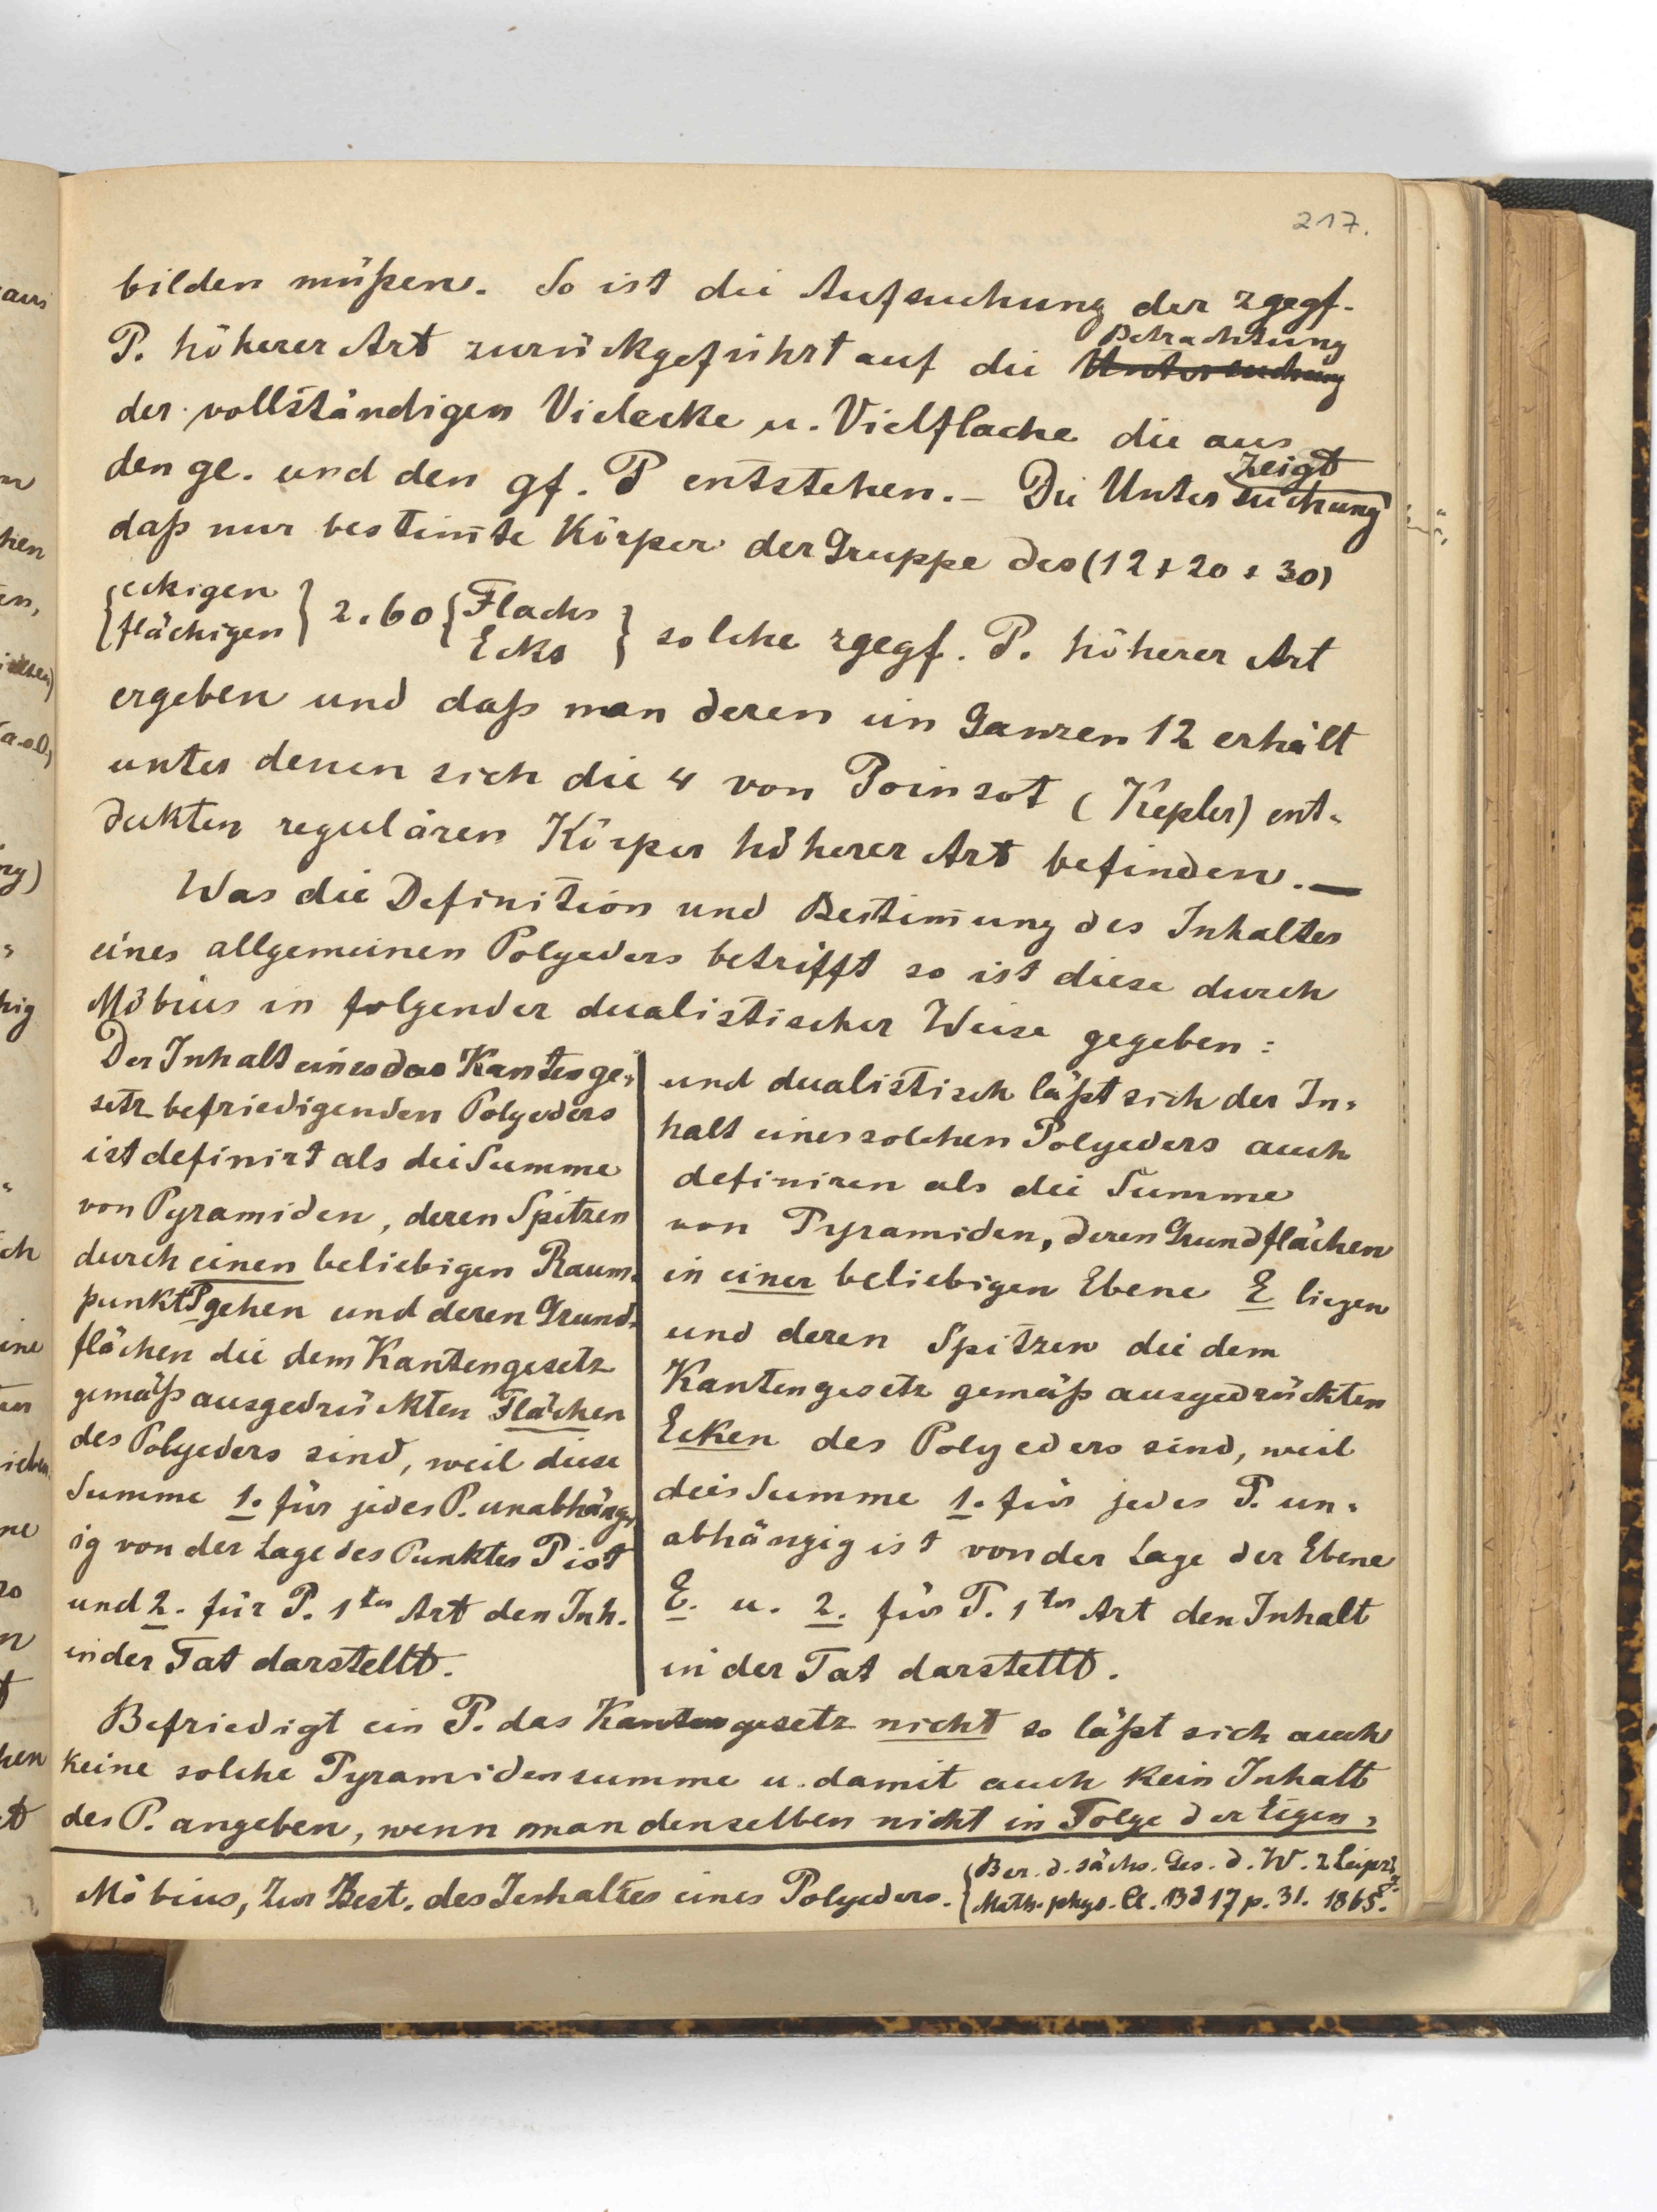 217.
bilden müßen. So ist die Aufsuchung der zgegf.
P. höherer Art zurückgeführt auf die Untersuchung Betrachtung
der vollständigen Vielecke u. Vielflache die aus
den ge. und den gf. P entstehen. – Die Untersuchung zeigt
daß nur bestim̄te Körper der Gruppe des (12+20+30)
{eckigen flächigen} 2.60 {Flachs Ecks} solche zgegf. P. höherer Art
ergeben und daß man deren im Ganzen 12 erhält
unter denen sich die 4 von Poinsot (Kepler) ent-
dekten regulären Körper höherer Art befinden. —
Was die Definition und Bestim̄ung des Inhaltes
eines allgemeinen Polyeders betrifft so ist diese durch
Möbius in folgender dualistischer Weise gegeben:
Der Inhalt eines das Kantenge-
setz befriedigenden Polyeders
ist definirt als die Summe
von Pyramiden, deren Spitzen
durch einen beliebigen Raum-
punkt P gehen und deren Grund-
flächen die dem Kantengesetz
gemäß ausgedrückten Flächen
des Polyeders sind, weil diese
Summe 1. für jedes P. unabhäng-
ig von der Lage des Punktes P ist
und 2. für P. 1ter Art den Inh.
in der Tat darstellt.
und dualistisch läßt sich der In-
halt eines solchen Polyeders auch
definiren als die Summe
von Pyramiden, deren Grundflächen
in einer beliebigen Ebene E liegen
und deren Spitzen die dem
Kantengesetz gemäß ausgedrückten
Ecken des Polyeders sind, weil
dies Summe 1. für jedes P. un-
abhängig ist von der Lage der Ebene
E. u. 2. für P. 1ter Art den Inhalt
in der Tat darstellt.
Befriedigt ein P. das Kantengesetz nicht so läßt sich auch
keine solche Pyramidensumme u. damit auch kein Inhalt
des P. angeben, wenn man denselben nicht in Folge der Eigen-
Möbius, Zur Best. des Inhaltes eines Polyeders. {Ber. d. sächs. Ges. d. W. z Leipzig.
Math. phys. Cl. Bd 17 p. 31. 1865.